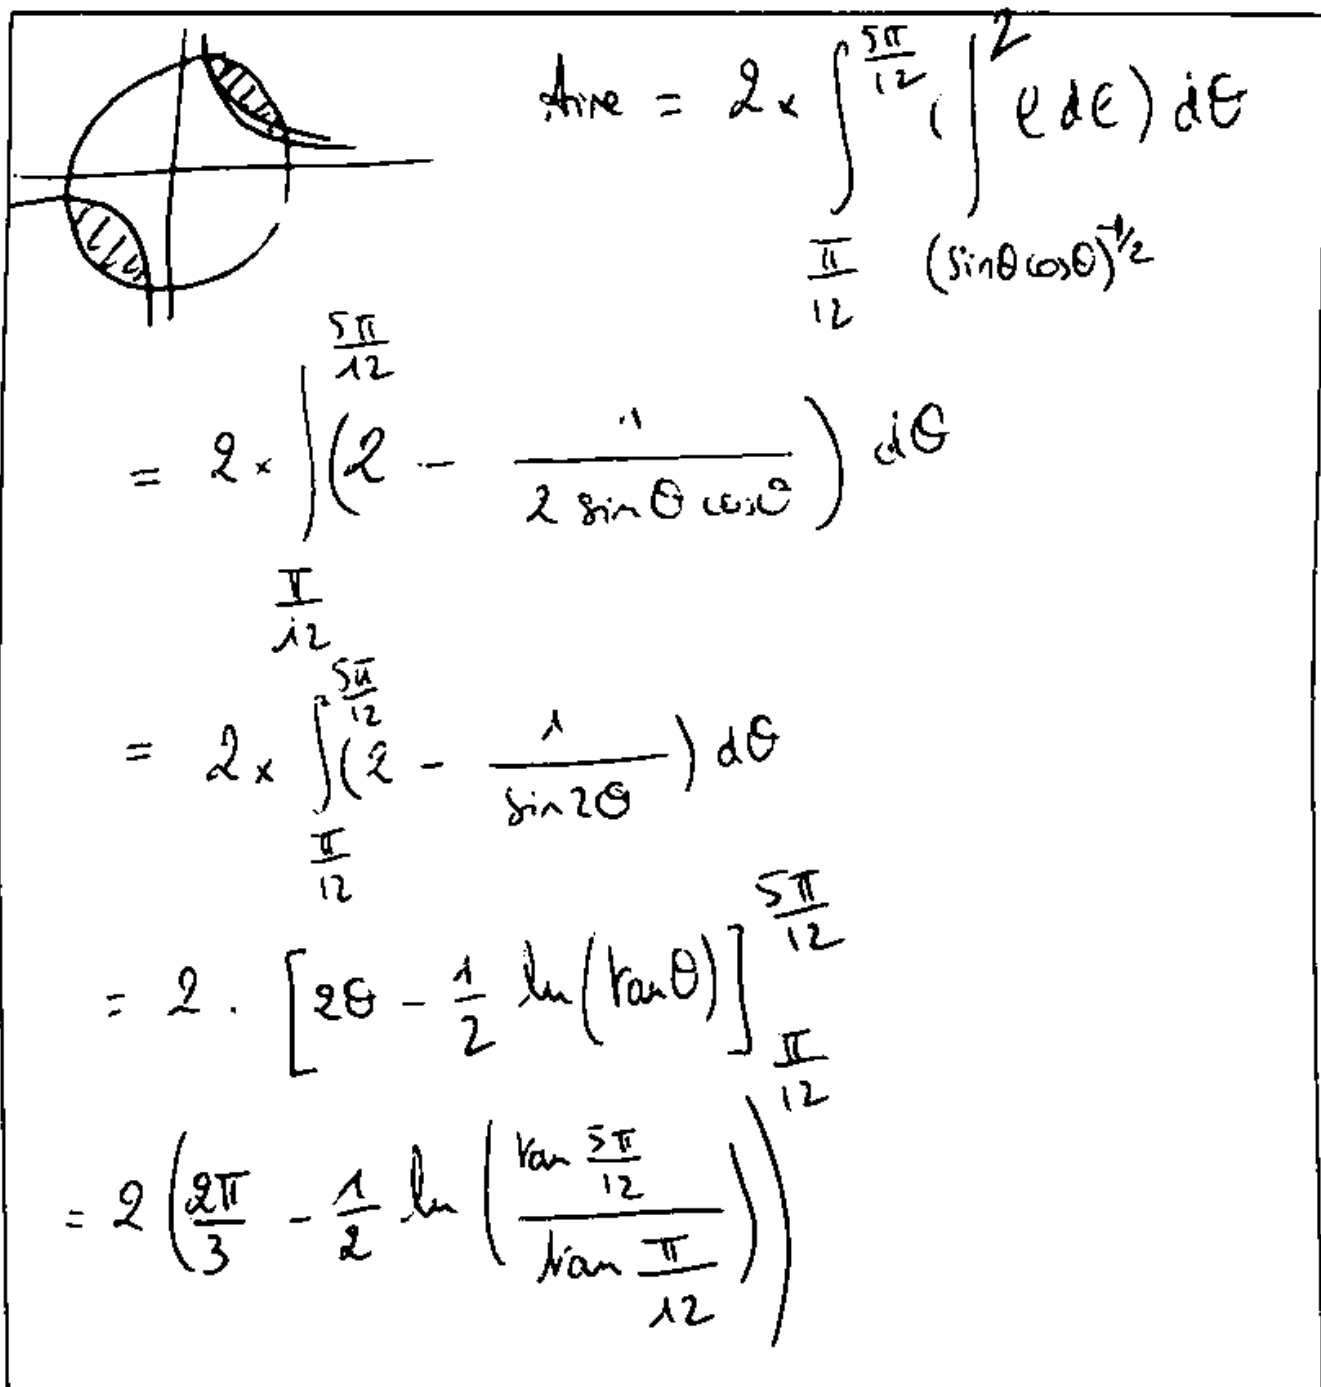 Aire = 2 × ∫_{π/12}^{5π/12} (∫_{(sinθ cosθ)^{-1/2}}^{2} ρ dρ) dθ
= 2 × ∫_{π/12}^{5π/12} (2 - 1/(2 sin θ cos θ)) dθ
= 2 × ∫_{π/12}^{5π/12} (2 - 1/(sin 2θ)) dθ
= 2 . [2θ - 1/2 ln(tan θ)]_{π/12}^{5π/12}
= 2 (2π/3 - 1/2 ln((tan 5π/12)/(tan π/12)))